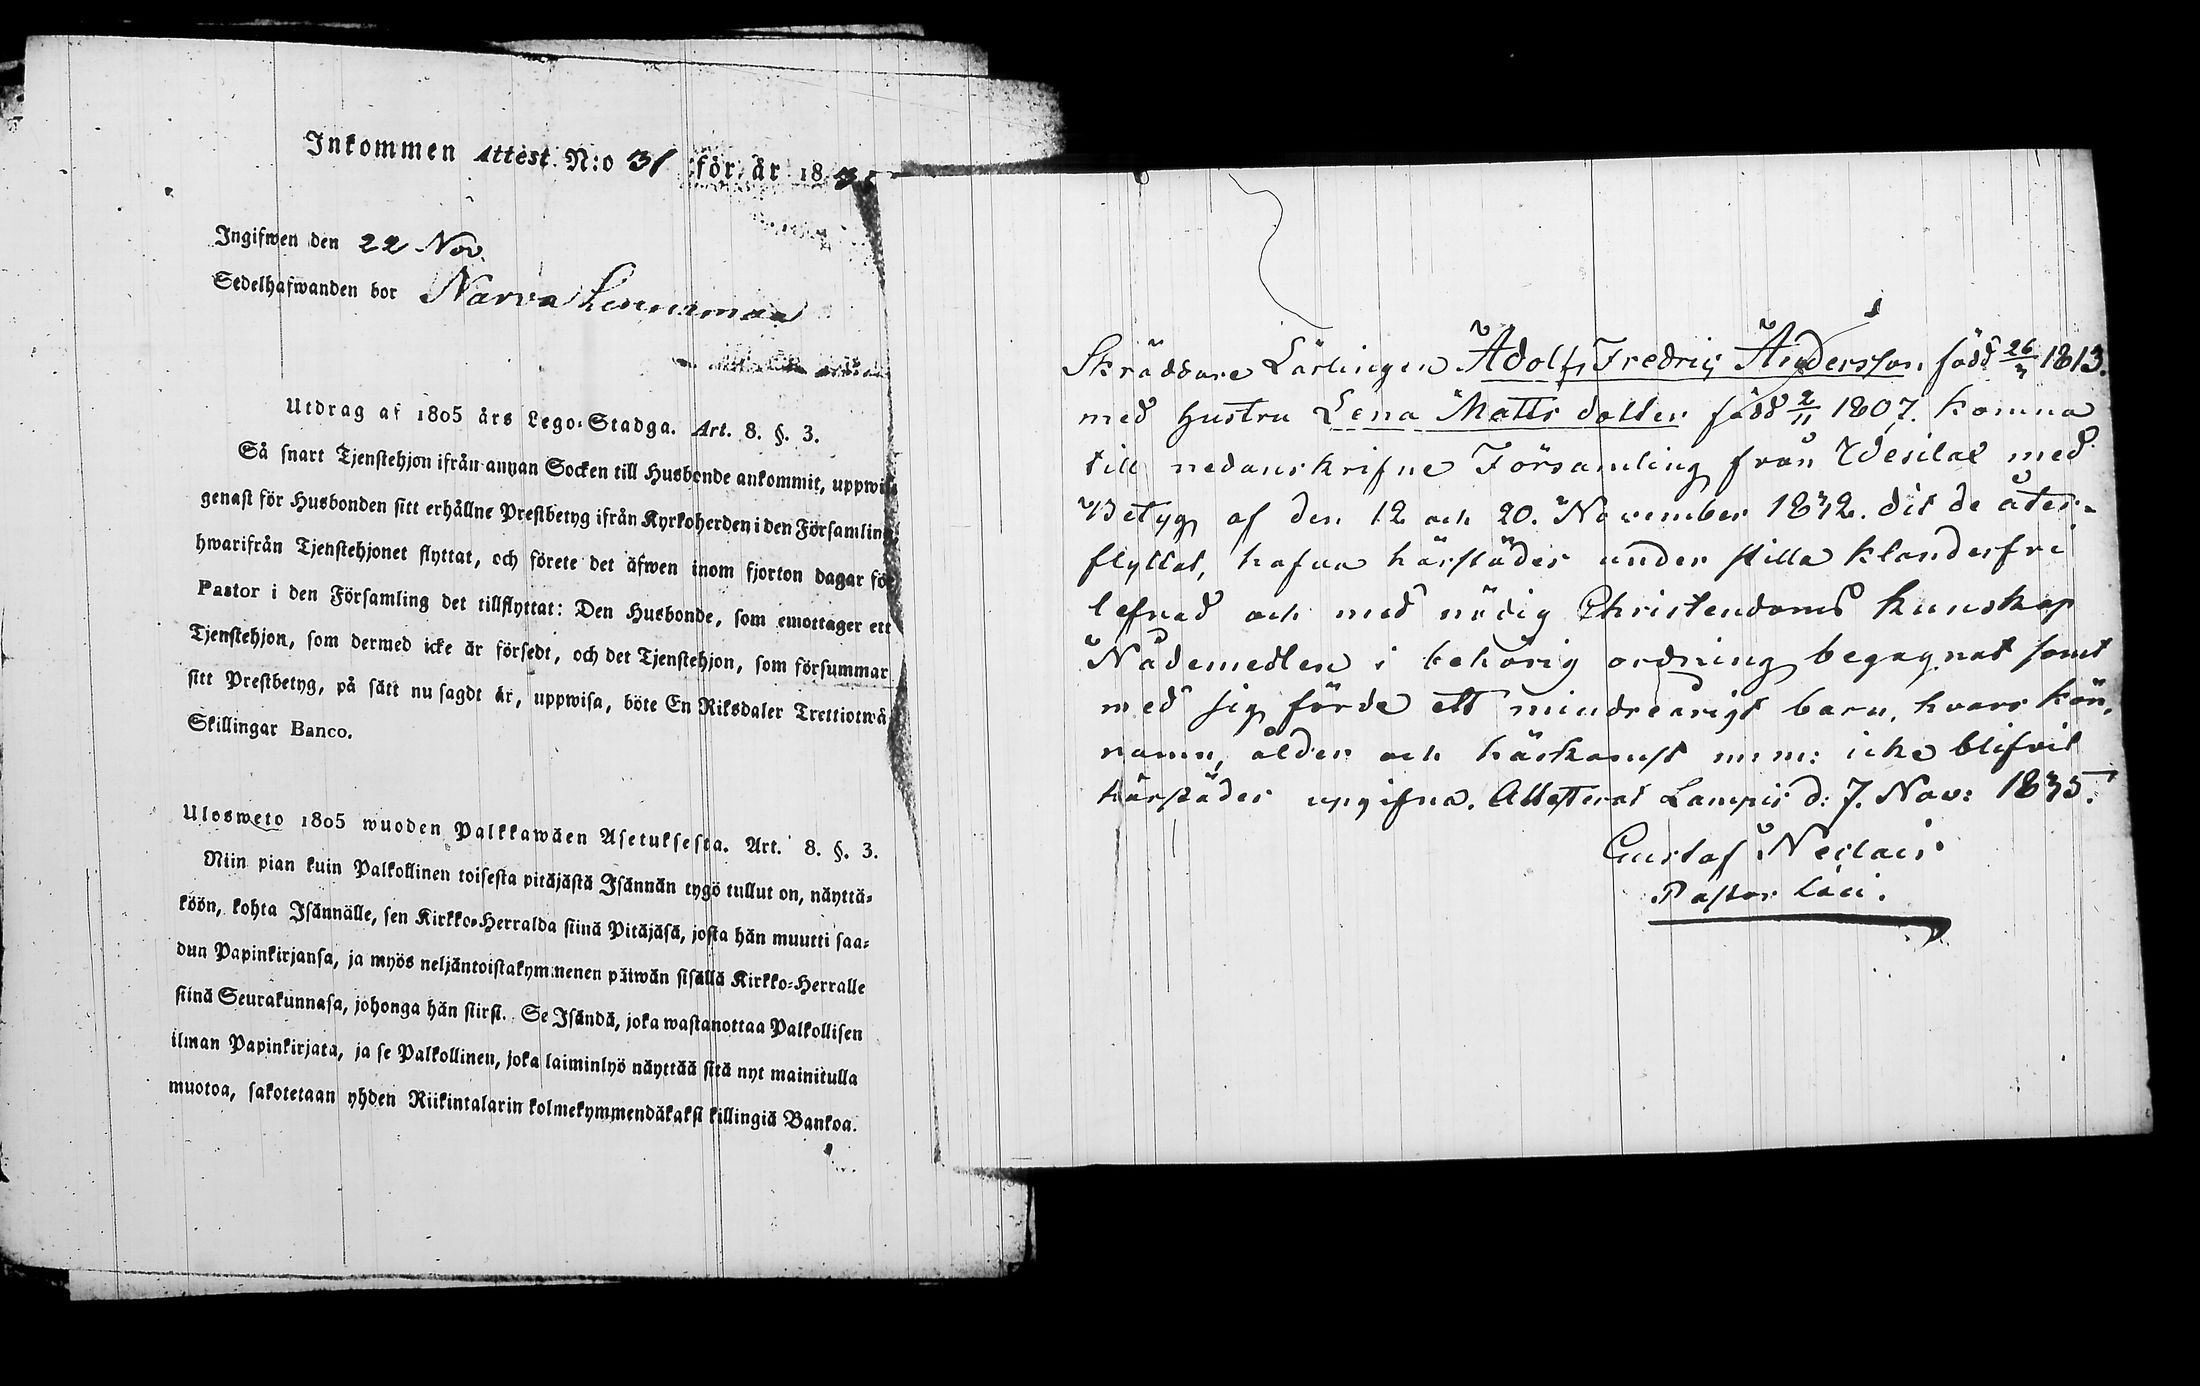 Inkommen Attest N:o 31 för år 18
Ingifwen den 22 Nov.
Sedelhafwanden bor Narva
Utdrag af 1805 års Lego-Stadga. Art. 8. §. 3.
Så snart Tjenstehjon ifrån annan Socken till Husbonde ankommit, uppwisa
genast för Husbonden sitt erhållne Prestbetyg ifrån Kyrkoherden i den Församling
hwarifrån Tjenstehjonet flyttat, och förete det äfwen inom fjorton dagar för
Pastor i den Församling det tillflyttat: Den Husbonde, som emottager ett
Tjenstehjon, som dermed icke är försedt, och det Tjenstehjon, som försummar
sitt Prestbetyg, på sätt nu sagdt är, uppwisa, böte En Riksdaler Trettiotwå
Skillingar Banco.
Ulosweto 1805 wuoden Palkkawäen Asetuksesta. Art. 8. §. 3.
Niin pian kuin Palkollinen toisesta pitäjästä Isännän tygö tullut on, näyttä-
köön, kohta Isännälle, sen Kirkko-Herralda siinä Pitäjäsä, josta hän muutti saa-
dun Papinkirjansa, ja myös neljäntoistakymmenen päiwän sisällä Kirkko-Herralle
siinä Seurakunnasa, johonga hän siirsi. Se Isändä, joka wastanottaa Palkollisen
ilman Papinkirjata, ja se Palkollinen, joka laiminlyö näyttää sitä nyt mainitulla
muotoa, sakotetaan yhden Riikintalarin kolmekymmendäkaksi killingiä Bankoa.
Skräddare Lärlingen Adolf Fredric Andersson född 26/3 1813.
med Hustru Lena Matts dotter född 2/11 1807. komna
till nedanskrifne Församling från Wesilax med
Betyg af den 12 och 20. November 1832. dit de åter-
flyttat, hafva härstädes under stilla klanderfri
lefnad och med nödig Christendoms kunskap
Nådemedlen i behörig ordning begagnat samt
med sig förde ett mindreårigt barn, hvars kön,
namn, ålder och härkomst m.m: icke blifvit
härstädes uppgifna. Attesterat Lampis d: 7. Nov: 1835.
Gustaf
Pastor Loci.